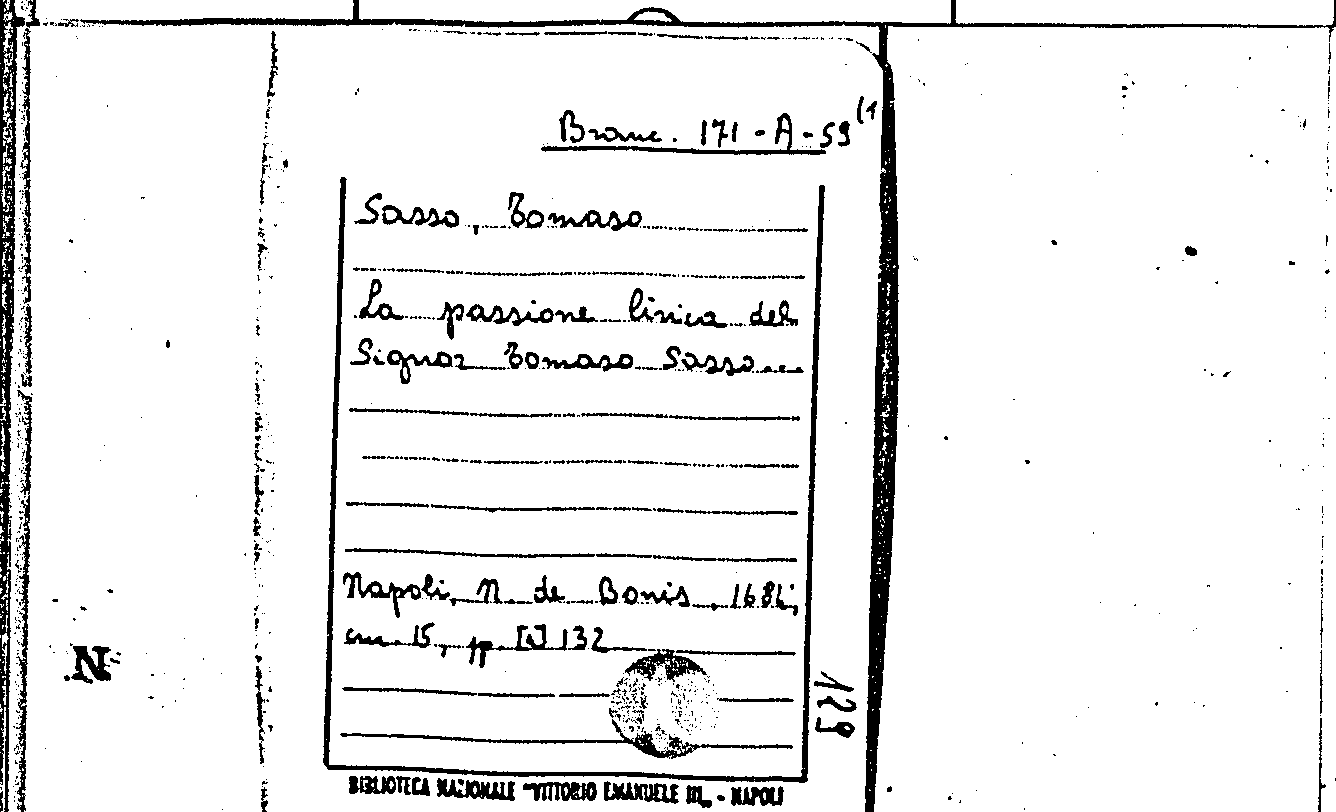 Branc. 171-A-59 (1
Sasso, Tomaso
La passione lirica del
Signor Tomaso Sasso...
Napoli, N. de Bonis, 1684;
cm. 15, pp. 132
129
N
BIBLIOTECA NAZIONALE "VITTORIO EMANUELE III" - NAPOLI